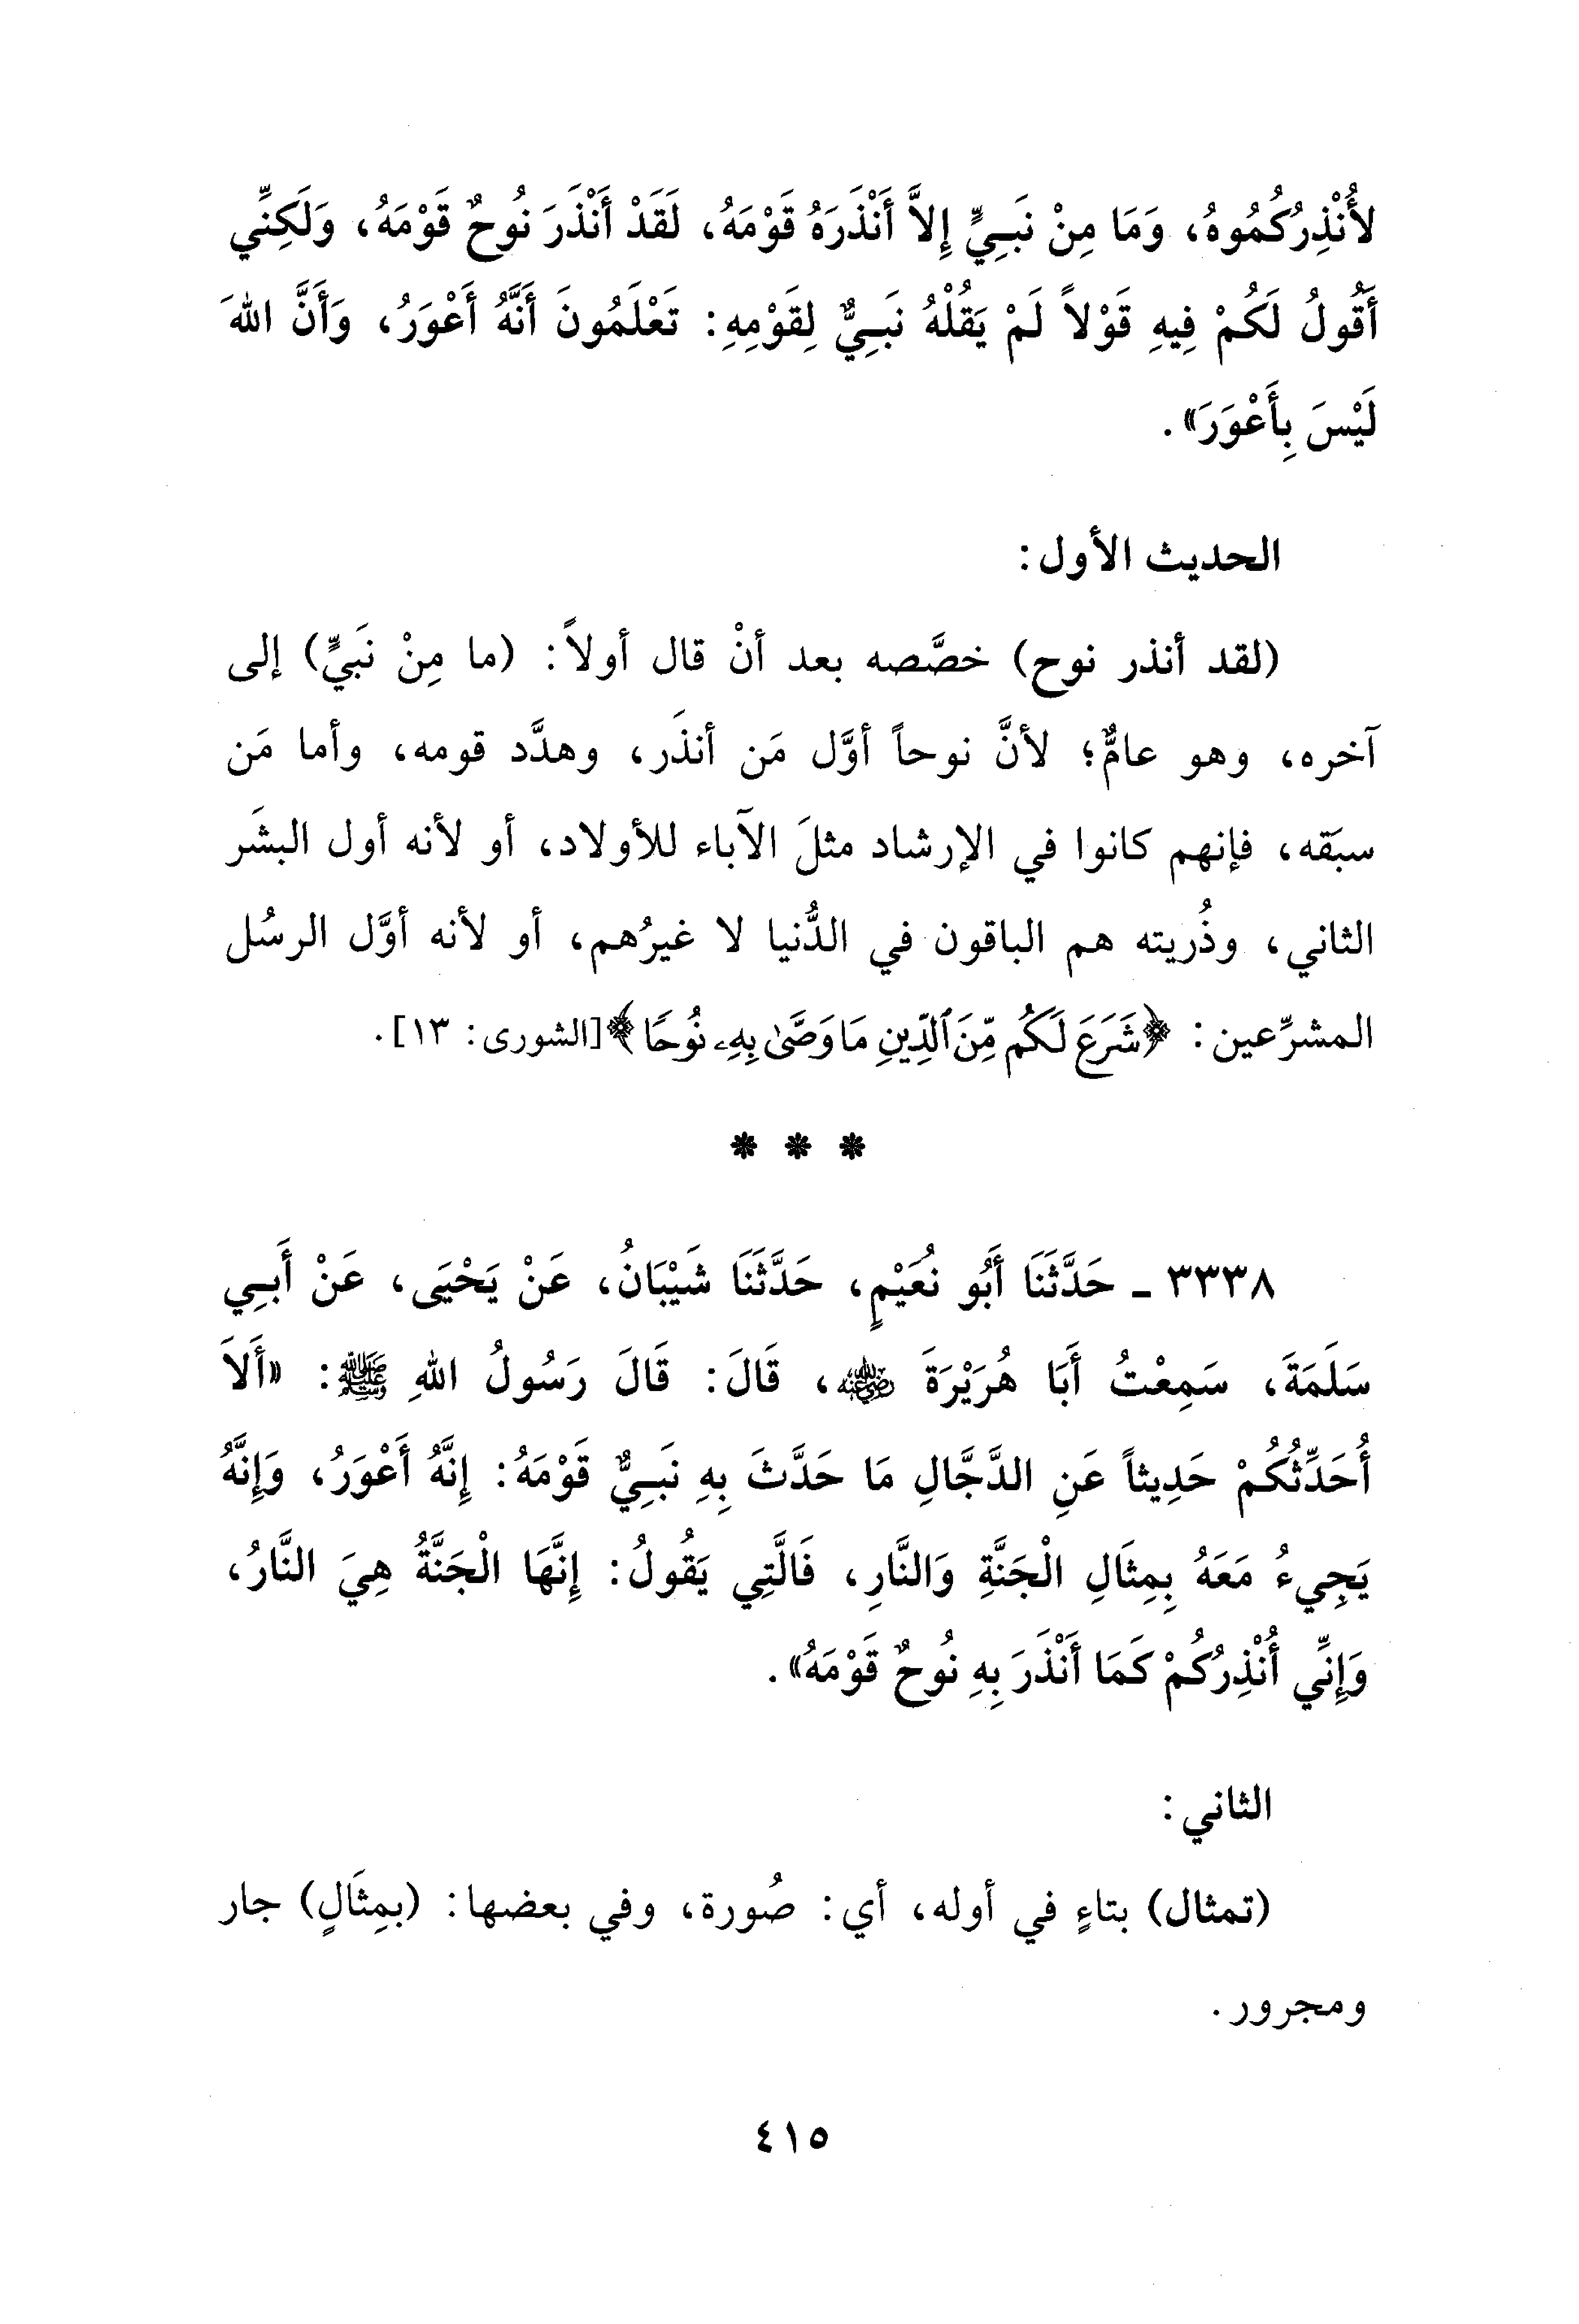 لأُنْذِرُكُمُوهُ، وَمَا مِنْ نَبِيٍّ إِلاَّ أَنْذَرَهُ قَوْمَهُ، لَقَدْ أَنْذَرَ نُوحٌ قَوْمَهُ، وَلَكِنِّي
أَقُولُ لَكُمْ فِيهِ قَوْلاً لَمْ يَقُلْهُ نَبِيٌّ لِقَوْمِهِ: تَعْلَمُونَ أَنَّهُ أَعْوَرُ، وَأَنَّ اللهَ
لَيْسَ بِأَعْوَرَ».
الحديث الأول:
(لقد أنذر نوح) خصَّصه بعد أنْ قال أولاً: (ما مِنْ نَبيٍّ) إلى
آخره، وهو عامٌّ؛ لأنَّ نوحاً أوَّل مَن أنذَر، وهدَّد قومه، وأما مَن
سبَقه، فإنهم كانوا في الإرشاد مثلَ الآباء للأولاد، أو لأنه أول البشَر
الثاني، وذُريته هم الباقون في الدُّنيا لا غيرُهم، أو لأنه أوَّل الرسُل
المشرِّعين: ﴿شَرَعَ لَكُم مِّنَ ٱلدِّينِ مَا وَصَّىٰ بِهِۦ نُوحًا﴾[الشورى: ١٣].
* * *
٣٣٣٨ ـ حَدَّثَنَا أَبُو نُعَيْمٍ، حَدَّثَنَا شَيْبَانُ، عَنْ يَحْيَى، عَنْ أَبِي
سَلَمَةَ، سَمِعْتُ أَبَا هُرَيْرَةَ رضي الله عنه، قَالَ: قَالَ رَسُولُ اللهِ ﷺ: «أَلاَ
أُحَدِّثُكُمْ حَدِيثاً عَنِ الدَّجَّالِ مَا حَدَّثَ بِهِ نَبِيٌّ قَوْمَهُ: إِنَّهُ أَعْوَرُ، وَإِنَّهُ
يَجِيءُ مَعَهُ بِمِثَالِ الْجَنَّةِ وَالنَّارِ، فَالَّتِي يَقُولُ: إِنَّهَا الْجَنَّةُ هِيَ النَّارُ،
وَإِنِّي أُنْذِرُكُمْ كَمَا أَنْذَرَ بِهِ نُوحٌ قَوْمَهُ».
الثاني:
(تمثال) بتاءٍ في أوله، أي: صُورة، وفي بعضها: (بمِثَالٍ) جار
ومجرور.
٤١٥